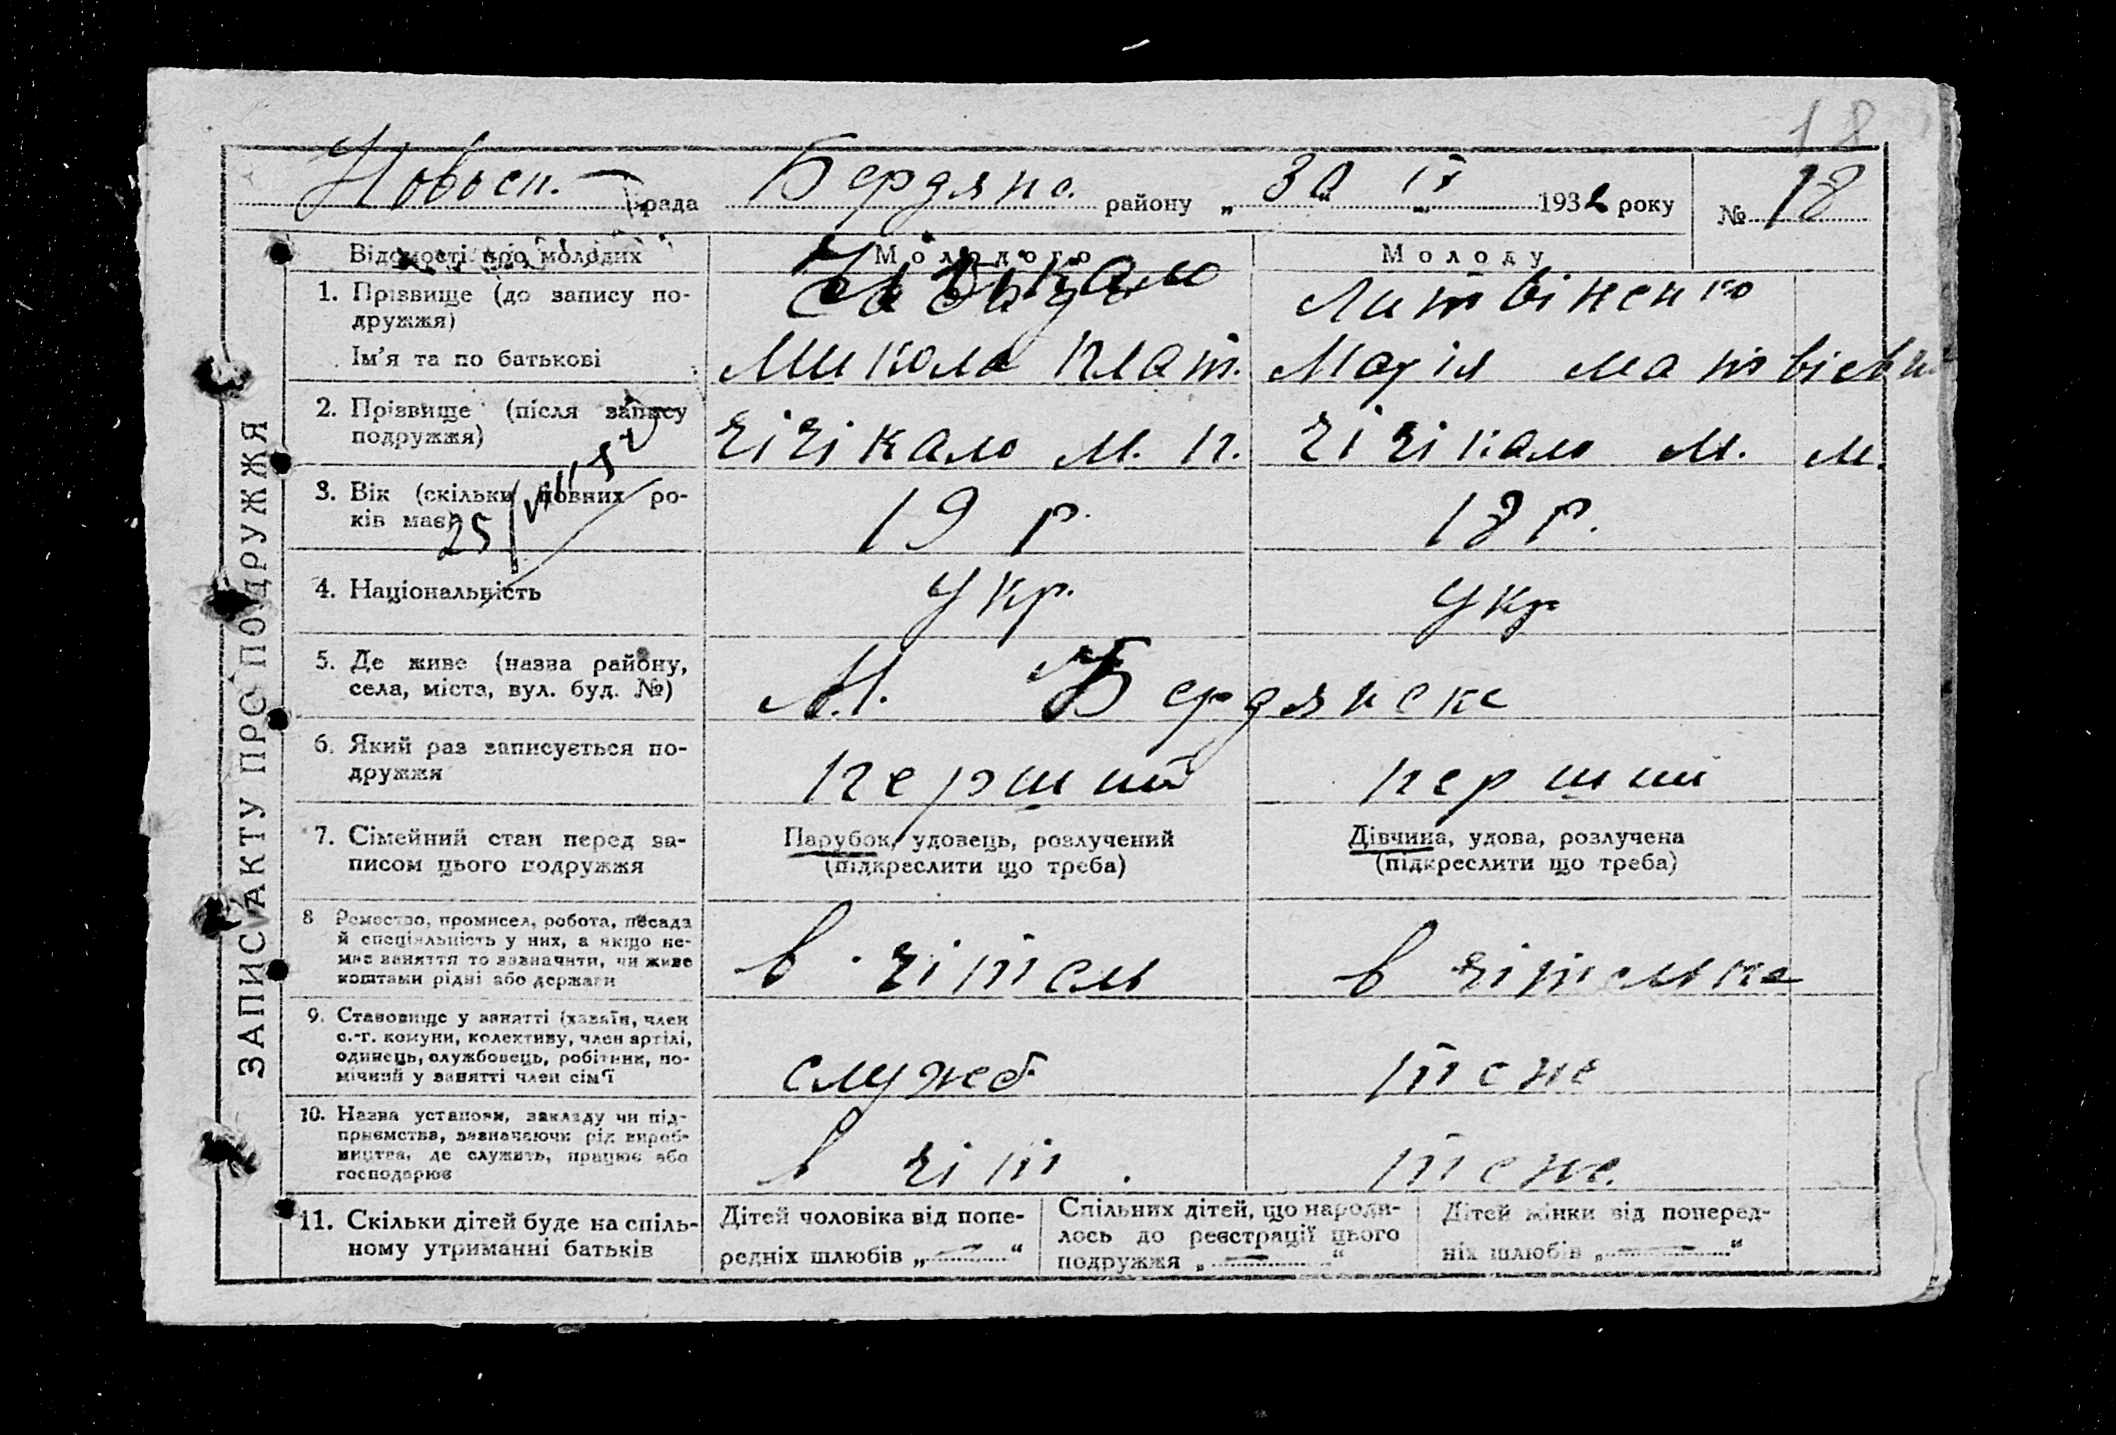 18
Новосп. рада Бердянс. району „ 30 “ IX 1932 року № 18
ЗАПИС АКТУ ПРО ПОДРУЖЖЯ
Відомості про молодих Молодого Молоду
1. Прізвище (до запису по-
дружжя)
Литвіненко
Ім'я та по батькові Микола Плат. Марія Матвіевн
2. Прізвище (після запису
подружжя) Чічікало М. П. Чічікало М. М.
3. Вік (скільки повних ро-
ків має) 19 р. 18 р.
25/VIII 52
4. Національність Укр. Укр
5. Де живе (назва району,
села, міста, вул. буд. №) М. Бердянске
6. Який раз записується по-
дружжя перший перший
7. Сімейний стан перед за-
писом цього подружжя
Парубок, удовець, розлучений
(підкреслити що треба)
Дівчина, удова, розлучена
(підкреслити що треба)
8 Ремество, промисел, робота, посада
й спеціяльність у них, а якщо не-
має заняття то зазначити, чи живе
коштами рідні або держави
вчітель вчітелька
9. Становище у занятті (хазяїн, член
с.-г. комуни, колективу, член артілі,
одинець, службовець, робітник, по-
мічний у занятті член сім'ї
служеб. теже
10. Назва установи, закладу чи під-
приємства, зазначаючи рід вироб-
ництва, де служить, працює або
господарює
вчіт. теже.
11. Скільки дітей буде на спіль-
ному утриманні батьків
Дітей чоловіка від попе-
редніх шлюбів „ — “
Спільних дітей, що народи-
лось до реєстрації цього
подружжя „ — “
Дітей жінки від поперед-
ніх шлюбів „ — “